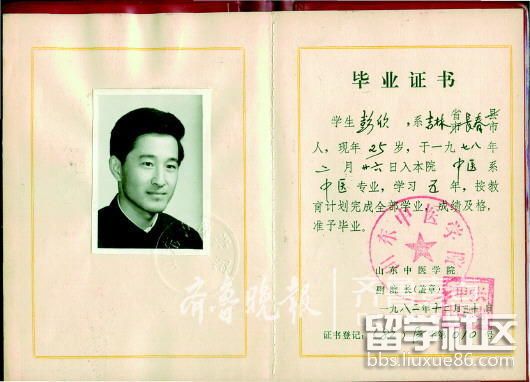 毕业证书
学生彭欣,系吉林省市长春县市
人,现年25岁,于一九七八年
二月廿六日入本院中医系
中医专业,学习五年,按教
育计划完成全部学业,成绩及格,
准予毕业。
山东中医学院
山东中医学院
副院长(盖章)
一九八二年十二月三十日
证书登记
号
齐鲁晚报
留学社区
bbs.liuxue86.com